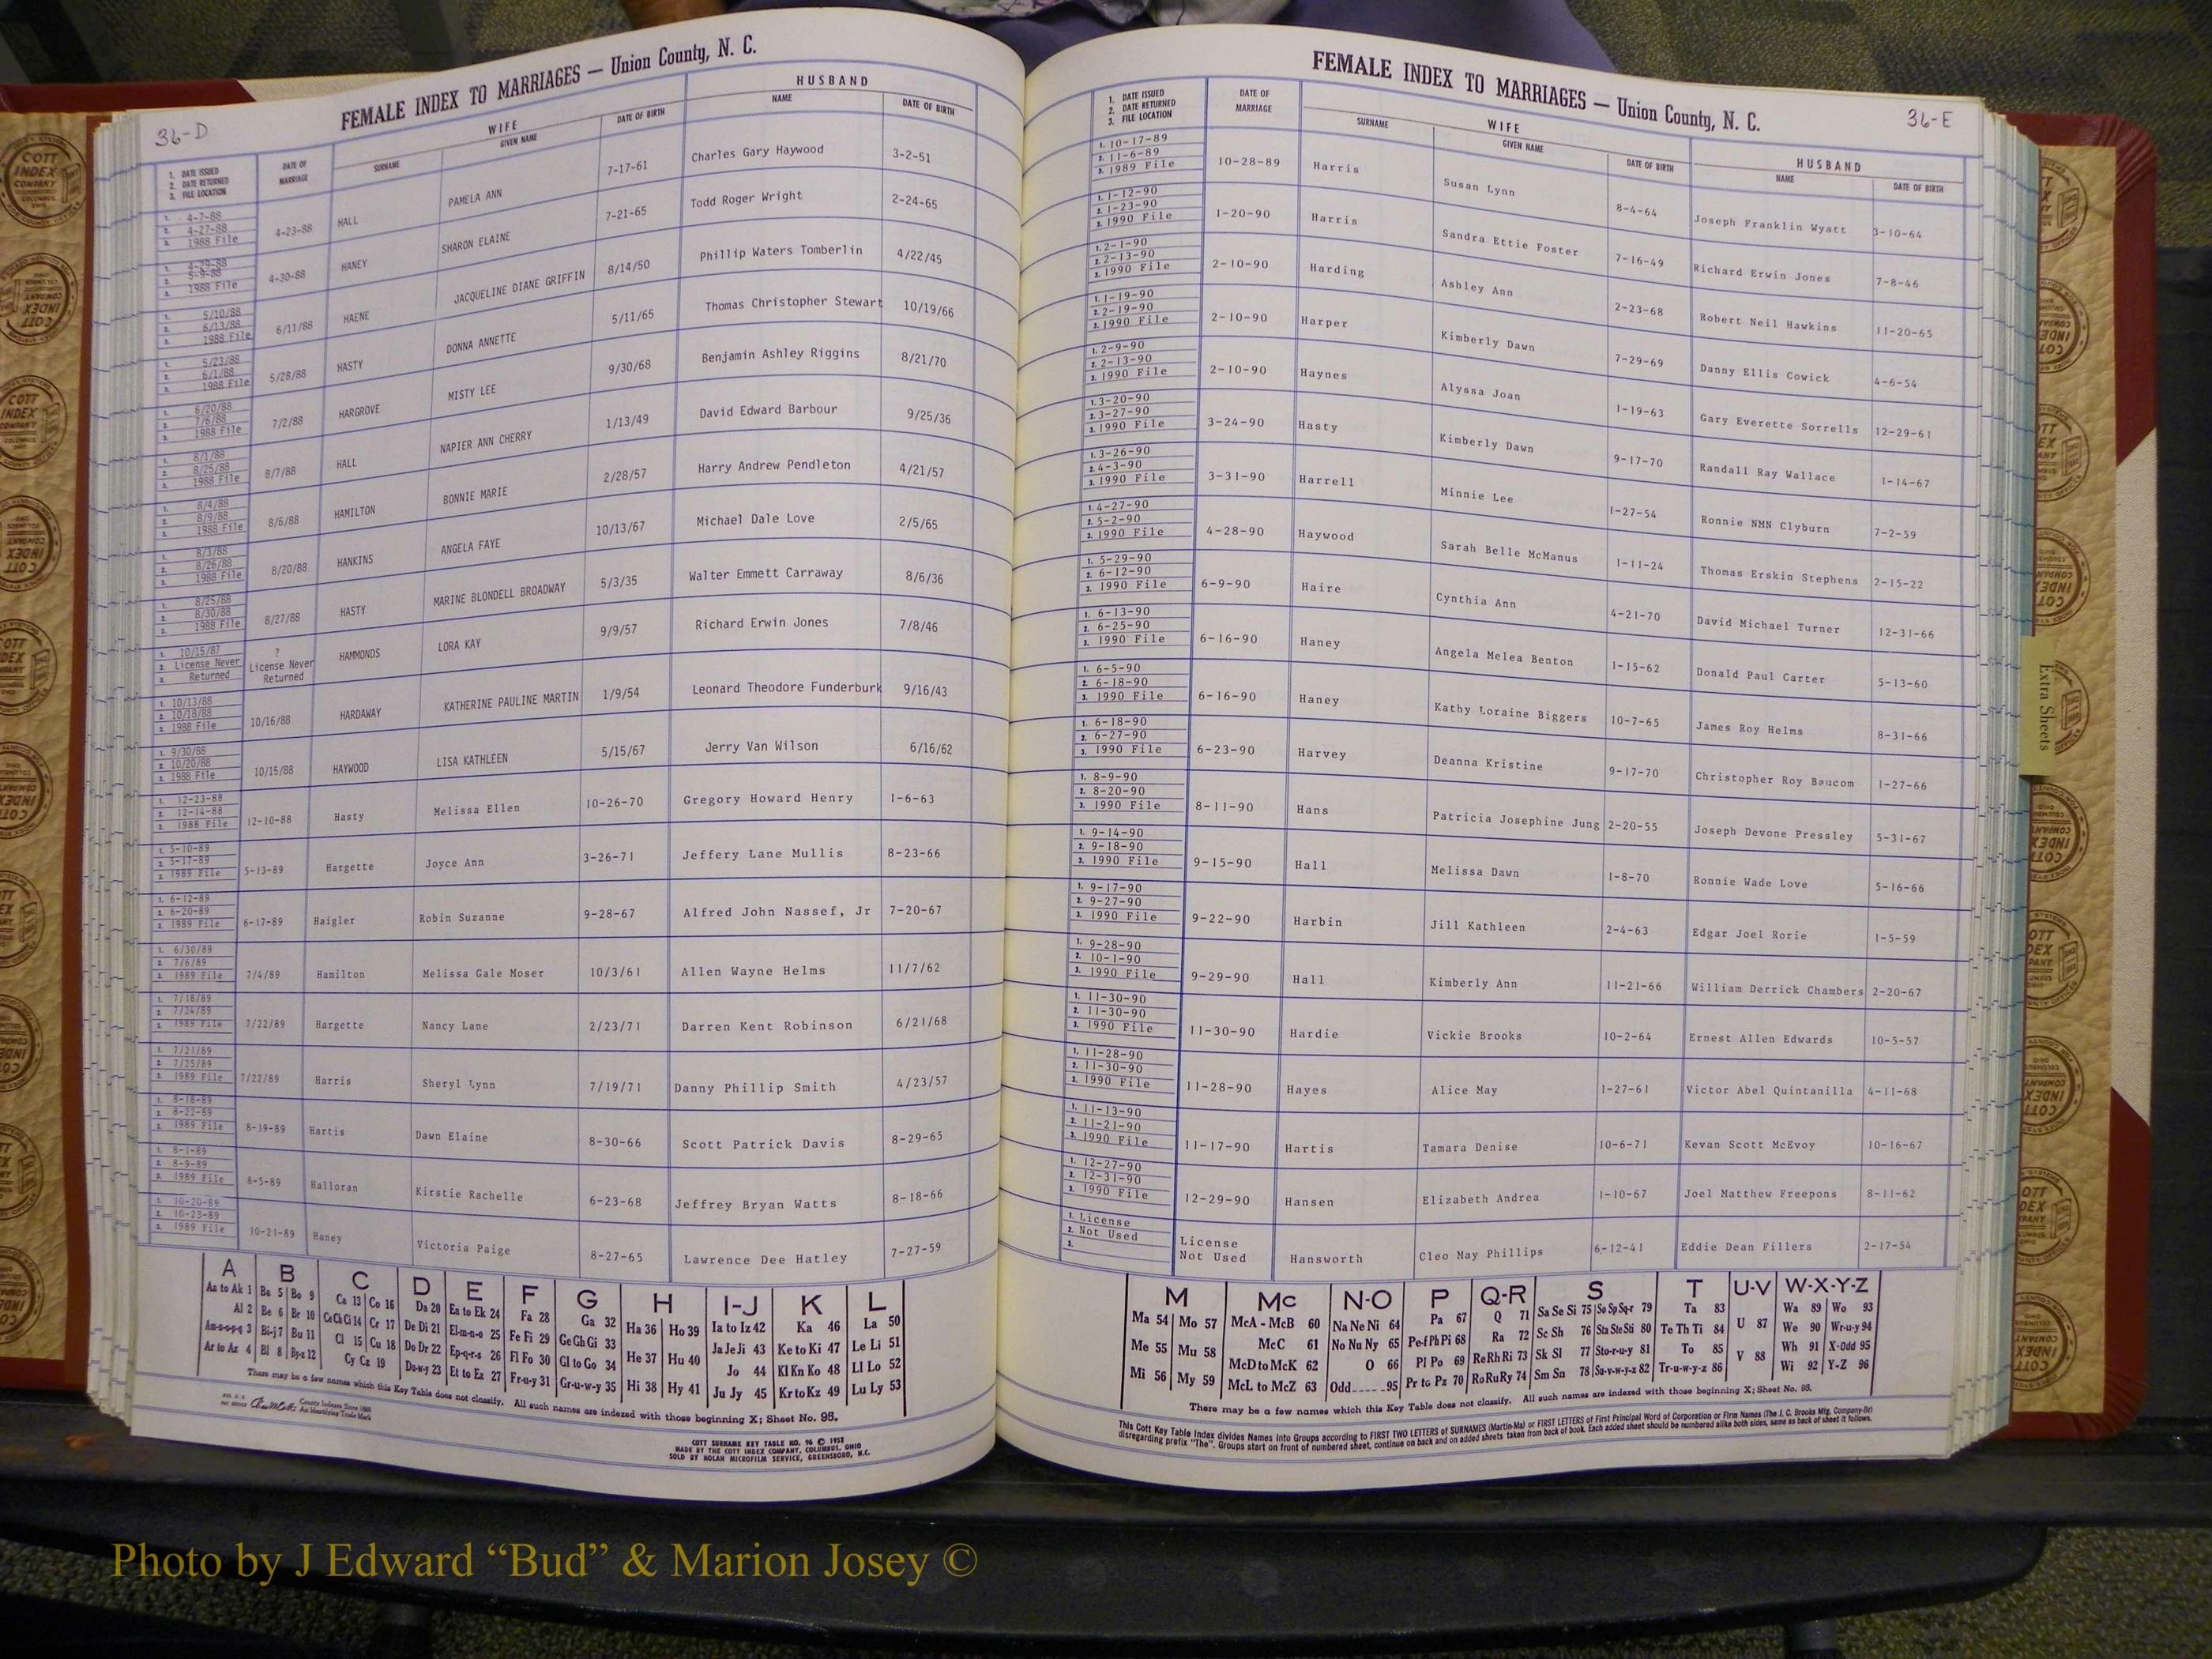 36-D
FEMALE INDEX TO MARRIAGES — Union County, N. C.
1. DATE ISSUED 2. DATE RETURNED 3. FILE LOCATION | DATE OF MARRIAGE | WIFE SURNAME | GIVEN NAME | DATE OF BIRTH | HUSBAND NAME | DATE OF BIRTH
1. 4-7-88 2. 4-27-88 3. 1988 File 4-23-88 HALL PAMELA ANN 7-17-61 Charles Gary Haywood 3-2-51
4-29-88 5-9-88 1988 File 4-30-88 HANEY SHARON ELAINE 7-21-65 Todd Roger Wright 2-24-65
5/10/88 6/13/88 1988 File 6/11/88 HAENE JACQUELINE DIANE GRIFFIN 8/14/50 Phillip Waters Tomberlin 4/22/45
5/23/88 6/1/88 1988 File 5/28/88 HASTY DONNA ANNETTE 5/11/65 Thomas Christopher Stewart 10/19/66
6/20/88 7/6/88 1988 File 7/2/88 HARGROVE MISTY LEE 9/30/68 Benjamin Ashley Riggins 8/21/70
8/1/88 8/25/88 1988 File 8/7/88 HALL NAPIER ANN CHERRY 1/13/49 David Edward Barbour 9/25/36
8/4/88 8/9/88 1988 File 8/6/88 HAMILTON BONNIE MARIE 2/28/57 Harry Andrew Pendleton 4/21/57
8/3/88 8/26/88 1988 File 8/20/88 HANKINS ANGELA FAYE 10/13/67 Michael Dale Love 2/5/65
8/25/88 8/30/88 1988 File 8/27/88 HASTY MARINE BLONDELL BROADWAY 5/3/35 Walter Emmett Carraway 8/6/36
1. 10/15/87 2. License Never 3. Returned ? License Never Returned HAMMONDS LORA KAY 9/9/57 Richard Erwin Jones 7/8/46
1. 10/13/88 2. 10/18/88 3. 1988 File 10/16/88 HARDAWAY KATHERINE PAULINE MARTIN 1/9/54 Leonard Theodore Funderburk 9/16/43
1. 9/30/88 2. 10/20/88 3. 1988 File 10/15/88 HAYWOOD LISA KATHLEEN 5/15/67 Jerry Van Wilson 6/16/62
1. 12-23-88 2. 12-14-88 3. 1988 File 12-10-88 Hasty Melissa Ellen 10-26-70 Gregory Howard Henry 1-6-63
1. 5-10-89 2. 5-17-89 3. 1989 File 5-13-89 Hargette Joyce Ann 3-26-71 Jeffery Lane Mullis 8-23-66
1. 6-12-89 2. 6-20-89 3. 1989 File 6-17-89 Haigler Robin Suzanne 9-28-67 Alfred John Nassef, Jr 7-20-67
1. 6/30/89 2. 7/6/89 3. 1989 File 7/4/89 Hamilton Melissa Gale Moser 10/3/61 Allen Wayne Helms 11/7/62
1. 7/18/89 2. 7/24/89 3. 1989 File 7/22/89 Hargette Nancy Lane 2/23/71 Darren Kent Robinson 6/21/68
1. 7/21/89 2. 7/25/89 3. 1989 File 7/22/89 Harris Sheryl Lynn 7/19/71 Danny Phillip Smith 4/23/57
1. 8-18-89 2. 8-22-89 3. 1989 File 8-19-89 Hartis Dawn Elaine 8-30-66 Scott Patrick Davis 8-29-65
1. 8-1-89 2. 8-9-89 3. 1989 File 8-5-89 Halloran Kirstie Rachelle 6-23-68 Jeffrey Bryan Watts 8-18-66
1. 10-20-89 2. 10-23-89 3. 1989 File 10-21-89 Haney Victoria Paige 8-27-65 Lawrence Dee Hatley 7-27-59
A B C D E F G H I-J K L
Aa to Ak 1 Ba 5 Bo 9 Ca 13 Co 16 Da 20 Ea to Ek 24 Fa 28 Ga 32 Ha 36 Ho 39 Ia to Iz 42 Ka 46 La 50
Al 2 Be 6 Br 10 Ce Ch Ci 14 Cr 17 De Di 21 El-m-n-o 25 Fe Fi 29 Ge Gh Gi 33 He 37 Hu 40 Ja Je Ji 43 Ke to Ki 47 Le Li 51
Am-n-o-p-q 3 Bi-j 7 Bu 11 Cl 15 Cu 18 Do Dr 22 Ep-q-r-s 26 Fl Fo 30 Gl to Go 34 Hi 38 Hy 41 Jo 44 Kl Kn Ko 48 Ll Lo 52
Ar to Az 4 Bl 8 By-z 12 Cy Cz 19 Du-w-y 23 Et to Ez 27 Fr-u-y 31 Gr-u-w-y 35 Ju Jy 45 Kr to Kz 49 Lu Ly 53
There may be a few names which this Key Table does not classify. All such names are indexed with those beginning X; Sheet No. 95.
County Indexes Since 1888
An Identifying Trade Mark
COTT SURNAME KEY TABLE NO. 96 © 1952
MADE BY THE COTT INDEX COMPANY, COLUMBUS, OHIO
SOLD BY NOLAN MICROFILM SERVICE, GREENSBORO, N.C.
36-E
FEMALE INDEX TO MARRIAGES — Union County, N. C.
1. DATE ISSUED 2. DATE RETURNED 3. FILE LOCATION | DATE OF MARRIAGE | WIFE SURNAME | GIVEN NAME | DATE OF BIRTH | HUSBAND NAME | DATE OF BIRTH
1. 10-17-89 2. 11-6-89 3. 1989 File 10-28-89 Harris Susan Lynn 8-4-64 Joseph Franklin Wyatt 3-10-64
1. 1-12-90 2. 1-23-90 3. 1990 File 1-20-90 Harris Sandra Ettie Foster 7-16-49 Richard Erwin Jones 7-8-46
1. 2-1-90 2. 2-13-90 3. 1990 File 2-10-90 Harding Ashley Ann 2-23-68 Robert Neil Hawkins 11-20-65
1. 1-19-90 2. 2-19-90 3. 1990 File 2-10-90 Harper Kimberly Dawn 7-29-69 Danny Ellis Cowick 4-6-54
1. 2-9-90 2. 2-13-90 3. 1990 File 2-10-90 Haynes Alyssa Joan 1-19-63 Gary Everette Sorrells 12-29-61
1. 3-20-90 2. 3-27-90 3. 1990 File 3-24-90 Hasty Kimberly Dawn 9-17-70 Randall Ray Wallace 1-14-67
1. 3-26-90 2. 4-3-90 3. 1990 File 3-31-90 Harrell Minnie Lee 1-27-54 Ronnie NMN Clyburn 7-2-59
1. 4-27-90 2. 5-2-90 3. 1990 File 4-28-90 Haywood Sarah Belle McManus 1-11-24 Thomas Erskin Stephens 2-15-22
1. 5-29-90 2. 6-12-90 3. 1990 File 6-9-90 Haire Cynthia Ann 4-21-70 David Michael Turner 12-31-66
1. 6-13-90 2. 6-25-90 3. 1990 File 6-16-90 Haney Angela Melea Benton 1-15-62 Donald Paul Carter 5-13-60
1. 6-5-90 2. 6-18-90 3. 1990 File 6-16-90 Haney Kathy Loraine Biggers 10-7-65 James Roy Helms 8-31-66
1. 6-18-90 2. 6-27-90 3. 1990 File 6-23-90 Harvey Deanna Kristine 9-17-70 Christopher Roy Baucom 1-27-66
1. 8-9-90 2. 8-20-90 3. 1990 File 8-11-90 Hans Patricia Josephine Jung 2-20-55 Joseph Devone Pressley 5-31-67
1. 9-14-90 2. 9-18-90 3. 1990 File 9-15-90 Hall Melissa Dawn 1-8-70 Ronnie Wade Love 5-16-66
1. 9-17-90 2. 9-27-90 3. 1990 File 9-22-90 Harbin Jill Kathleen 2-4-63 Edgar Joel Rorie 1-5-59
1. 9-28-90 2. 10-1-90 3. 1990 File 9-29-90 Hall Kimberly Ann 11-21-66 William Derrick Chambers 2-20-67
1. 11-30-90 2. 11-30-90 3. 1990 File 11-30-90 Hardie Vickie Brooks 10-2-64 Ernest Allen Edwards 10-5-57
1. 11-28-90 2. 11-30-90 3. 1990 File 11-28-90 Hayes Alice May 1-27-61 Victor Abel Quintanilla 4-11-68
1. 11-13-90 2. 11-21-90 3. 1990 File 11-17-90 Hartis Tamara Denise 10-6-71 Kevan Scott McEvoy 10-16-67
1. 12-27-90 2. 12-31-90 3. 1990 File 12-29-90 Hansen Elizabeth Andrea 1-10-67 Joel Matthew Freepons 8-11-62
1. License 2. Not Used 3. License Not Used Hansworth Cleo May Phillips 6-12-41 Eddie Dean Fillers 2-17-54
M Mc N-O P Q-R S T U-V W-X-Y-Z
Ma 54 Mo 57 McA - McB 60 Na Ne Ni 64 Pa 67 Q 71 Sa Se Si 75 So Sp Sq-r 79 Ta 83 U 87 Wa 89 Wo 93
Me 55 Mu 58 McC 61 No Nu Ny 65 Pe-f Ph Pi 68 Ra 72 Sc Sh 76 Sta Ste Sti 80 Te Th Ti 84 V 88 We 90 Wr-u-y 94
Mi 56 My 59 McD to McK 62 O 66 Pl Po 69 Re Rh Ri 73 Sk Sl 77 Sto-r-u-y 81 To 85 Wh 91 X-Odd 95
McL to McZ 63 Odd 95 Pr to Pz 70 Ro Ru Ry 74 Sm Sn 78 Su-v-w-y-z 82 Tr-u-w-y-z 86 Wi 92 Y-Z 96
There may be a few names which this Key Table does not classify. All such names are indexed with those beginning X; Sheet No. 95.
This Cott Key Table Index divides Names into Groups according to FIRST TWO LETTERS of SURNAMES (Martin-Ma) or FIRST LETTERS of First Principal Word of Corporation or Firm Names (The J. C. Brooks Mfg. Company-Br)
disregarding prefix "The". Groups start on front of numbered sheet, continue on back and on added sheets taken from back of book. Each added sheet should be numbered alike both sides, same as back of sheet it follows.
Extra Sheets
COTT INDEX COMPANY
Photo by J Edward “Bud” & Marion Josey ©